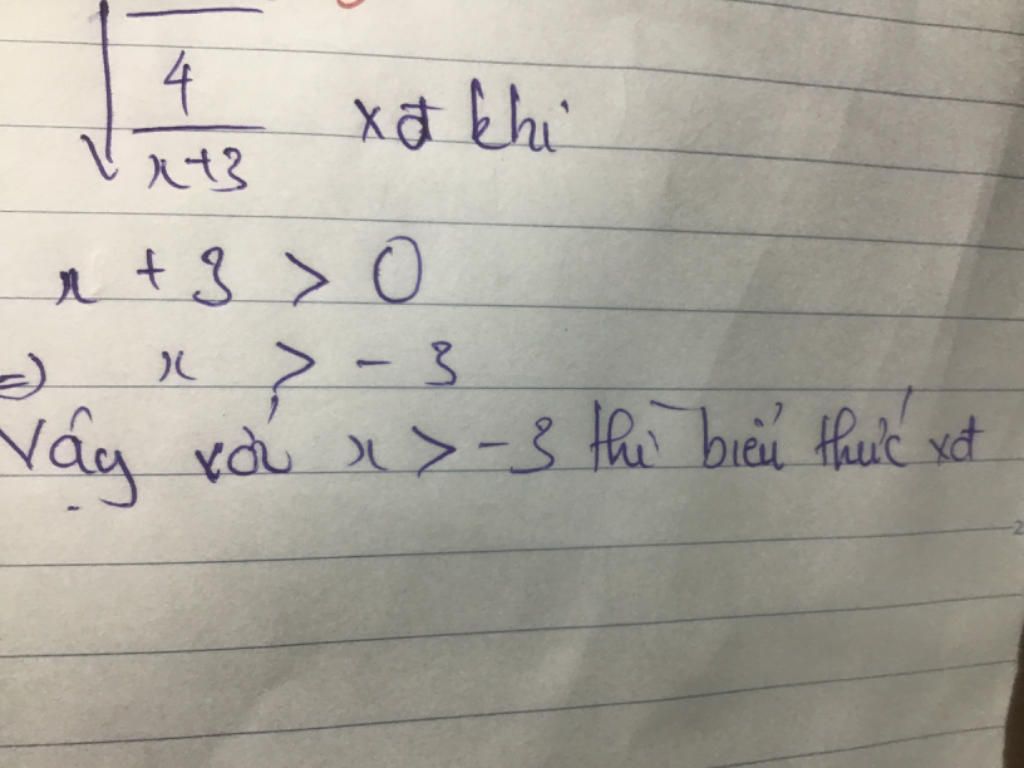 √(4/(x+3)) xđ khi
x + 3 > 0
=) x > - 3
Vậy với x > -3 thì biểu thức xđ
2